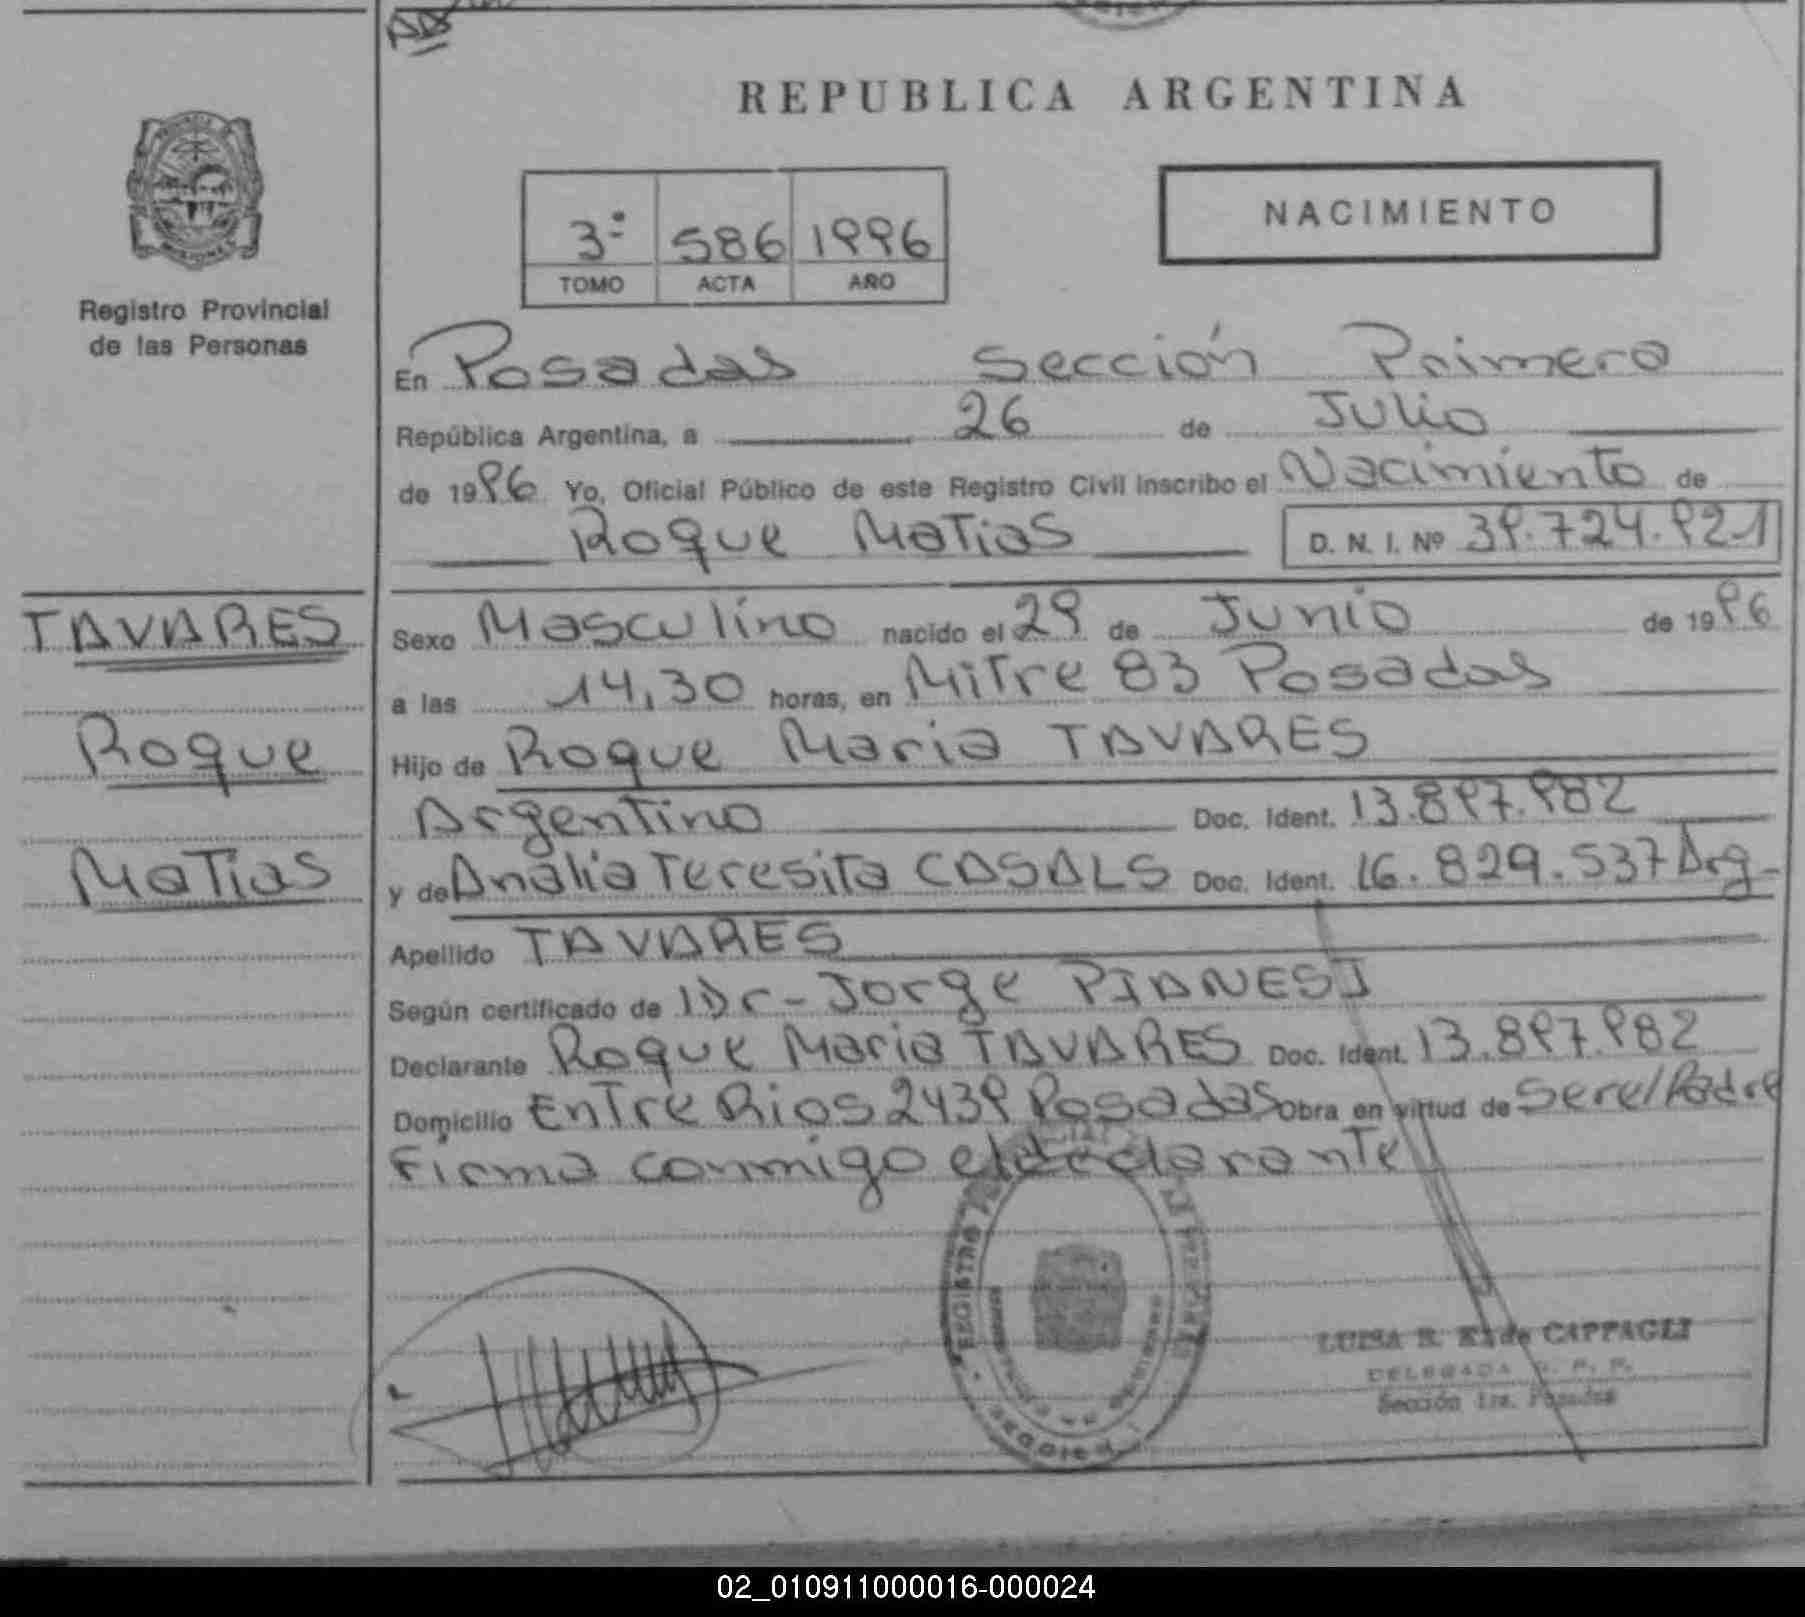 REPUBLICA ARGENTINA
NACIMIENTO
3º 586 1996
TOMO ACTA AÑO
Registro Provincial
de las Personas
En Posadas Sección Primera
República Argentina, a 26 de Julio
de 1996 Yo, Oficial Público de este Registro Civil inscribo el Nacimiento de
Roque Matias D. N. I. Nº 39.724.921
TAVARES
Roque
Matias
Sexo Masculino nacido el 29 de Junio de 1996
a las 14,30 horas, en Mitre 83 Posadas
Hijo de Roque Maria TAVARES
Argentino Doc. Ident. 13.897.982
y de Analia Teresita CASALS Doc. Ident. 16.829.537 Arg-
Apellido TAVARES
Según certificado de Dr- Jorge PIANESI
Declarante Roque Maria TAVARES Doc. Ident. 13.897.982
Domicilio Entre Rios 2439 Posadas Obra en virtud de Ser el Padre
Firma conmigo el declarante
LUISA R. K. de CAPPAGLI
DELEGADA R. P. P.
Sección 1ra. Posadas
02_010911000016-000024